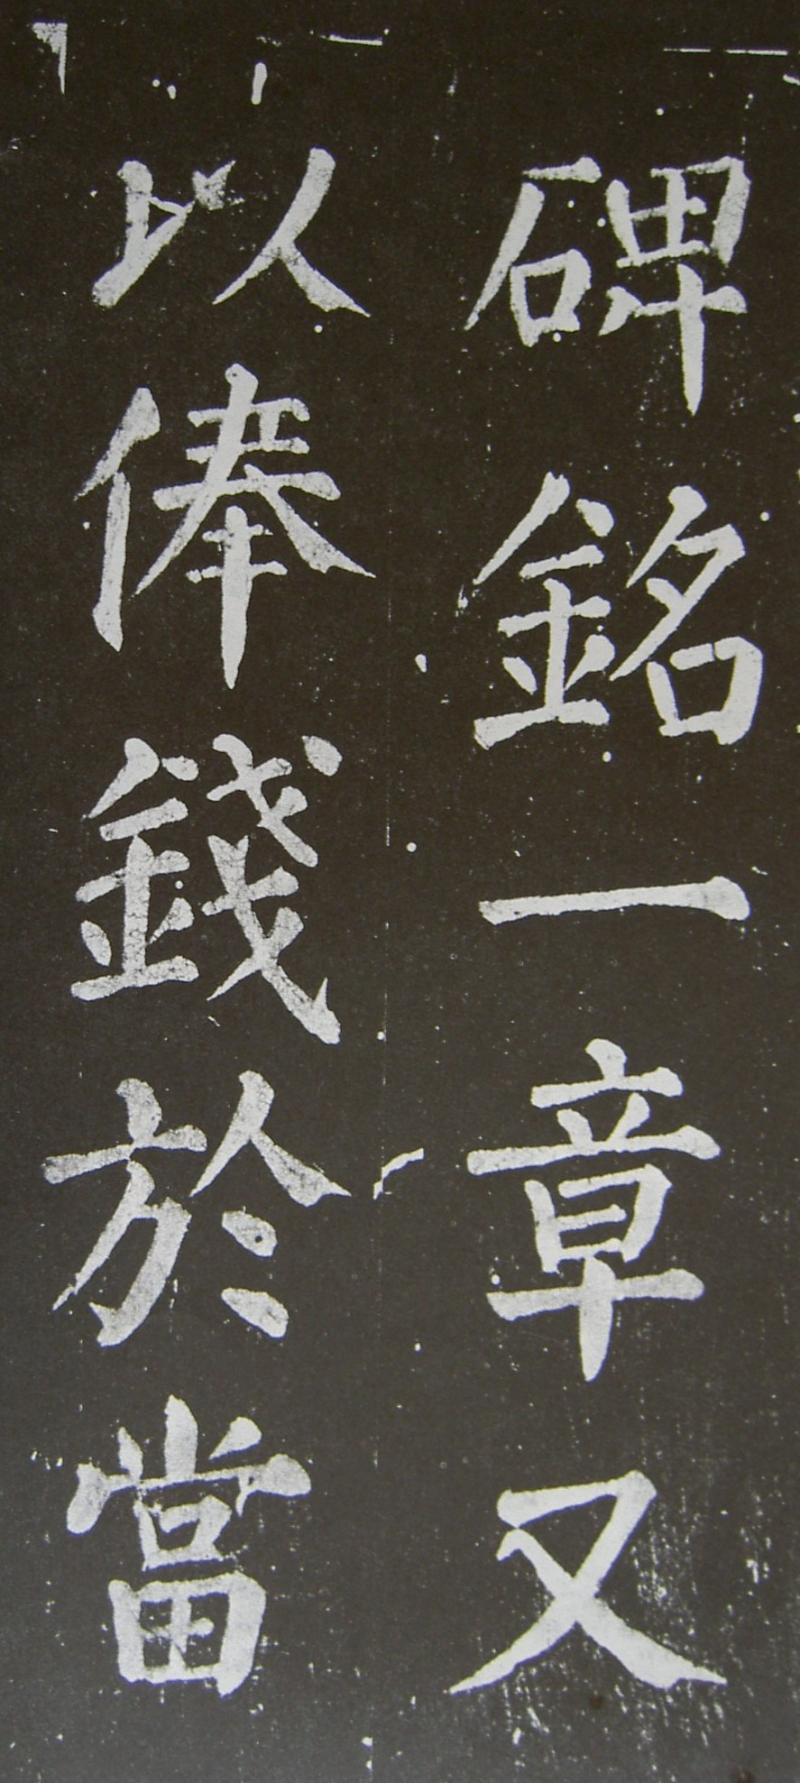 碑銘一章又
以俸錢於當